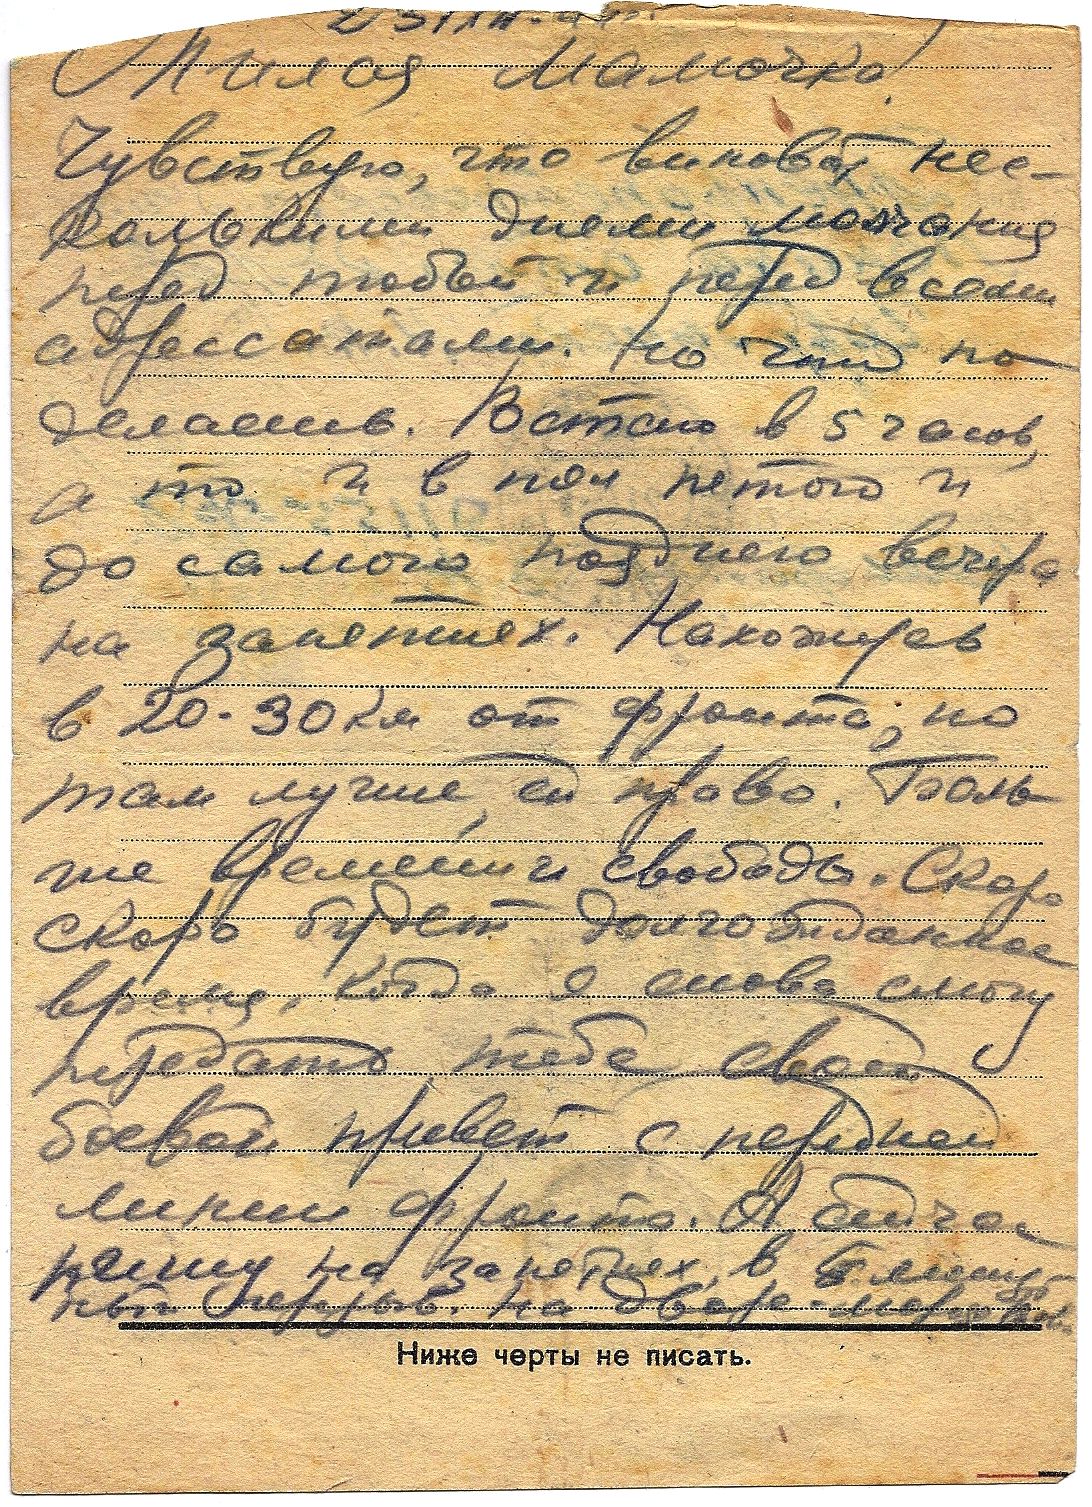 Милая Мамочка!
Чувствую, что виноват нес-
колькими днями молчания
перед тобой и перед всеми
адрессатами. Но что по-
делаешь. Встаю в 5 часов,
а то и в пол пятого и
до самого позднего вечера
на занятиях. Нахожусь
в 20-30 км от фронта, но
там лучше, ей право. Боль-
ше времени и свободы. Скоро
скоро будет долгожданное
время, когда я снова смогу
передать тебе свой
боевой привет с передней
линии фронта. А сейчас
пишу на занятиях, в 5 минут-
ный перерыв. На дворе мороз
Ниже черты не писать.